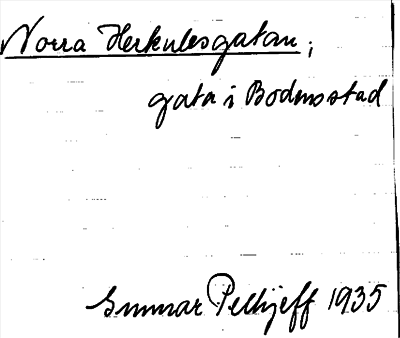 Norra Herkulesgatan;
gata i Bodens stad
Gunnar Pellijeff 1935